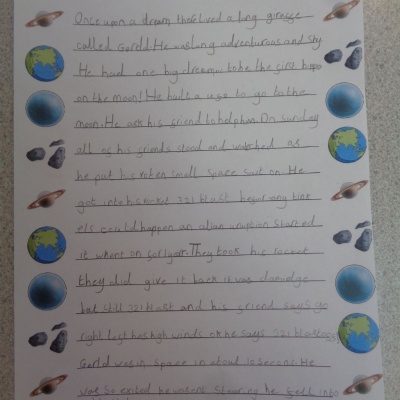 Once upon a dream there lived a long girasse
called Gorld. He was long adventurous and shy
He had one big dream to be the first hippo
on the moon! He built a use to go to the
moon. He asks his friend to help him. On sunday
all of his friends stood and watched as
he put his rotten small space suit on. He
got into his rocket 321 blast befor any tink
els could happen an alian uraption started
it whent on for 1 year. They took his rocket
they did give it back it was damadge
but still 321 blast and his friend says go
right last has high winds ok he says 321 blastoss
Gorld was in space in about 10 seconds. He
was so exited he wasent stearing he fell into